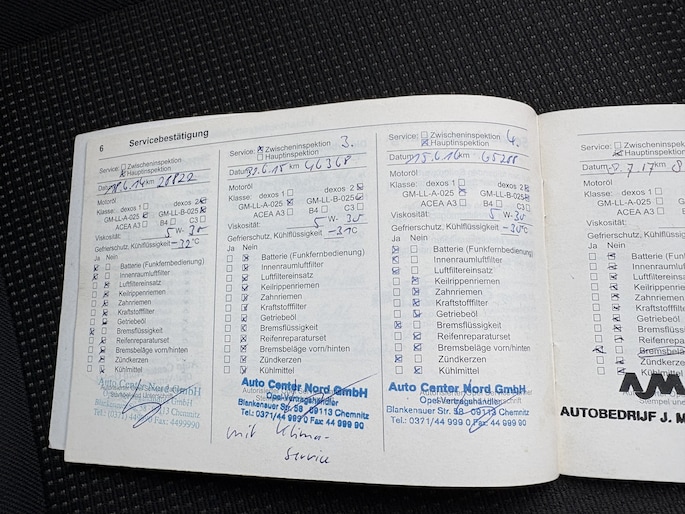 6 Servicebestätigung
Service: Zwischeninspektion
Hauptinspektion
Datum 18.6.14 km 21822
Motoröl
Klasse: dexos 1 dexos 2
GM-LL-A-025 GM-LL-B-025
ACEA A3 B4 C3
Viskosität: 5 W- 30
Gefrierschutz, Kühlflüssigkeit -32°C
Ja Nein
Batterie (Funkfernbedienung)
Innenraumluftfilter
Luftfiltereinsatz
Keilrippenriemen
Zahnriemen
Kraftstofffilter
Getriebeöl
Bremsflüssigkeit
Reifenreparaturset
Bremsbeläge vorn/hinten
Zündkerzen
Kühlmittel
Auto Center Nord GmbH
Opel-Vertragshändler
Blankenauer Str. 58 09113 Chemnitz
Tel.: 0371/44 999 0 Fax: 4499990
Service: Zwischeninspektion 3.
Hauptinspektion
Datum .6.15 km 46368
Motoröl
Klasse: dexos 1 dexos 2
GM-LL-A-025 GM-LL-B-025
ACEA A3 B4 C3
Viskosität: 5 W- 30
Gefrierschutz, Kühlflüssigkeit -31°C
Ja Nein
Batterie (Funkfernbedienung)
Innenraumluftfilter
Luftfiltereinsatz
Keilrippenriemen
Zahnriemen
Kraftstofffilter
Getriebeöl
Bremsflüssigkeit
Reifenreparaturset
Bremsbeläge vorn/hinten
Zündkerzen
Kühlmittel
Auto Center Nord GmbH
Opel-Vertragshändler
Blankenauer Str. 58 09113 Chemnitz
Tel.: 0371/44 999 0 Fax 44 999 90
mit Klima-
Service
Service: Zwischeninspektion 4.
Hauptinspektion
Datum 15.6.16 km 65288
Motoröl
Klasse: dexos 1 dexos 2
GM-LL-A-025 GM-LL-B-025
ACEA A3 B4 C3
Viskosität: 5 W- 30
Gefrierschutz, Kühlflüssigkeit -30°C
Ja Nein
Batterie (Funkfernbedienung)
Innenraumluftfilter
Luftfiltereinsatz
Keilrippenriemen
Zahnriemen
Kraftstofffilter
Getriebeöl
Bremsflüssigkeit
Reifenreparaturset
Bremsbeläge vorn/hinten
Zündkerzen
Kühlmittel
Auto Center Nord GmbH
Opel-Vertragshändler
Blankenauer Str. 58 09113 Chemnitz
Tel.: 0371/44 999 0 Fax 44 999 90
Service: Zwischeninspektion
Hauptinspektion
Datum .7.17 km 8
Motoröl
Klasse: dexos 1
GM-LL-A-025
ACEA A3 B4
Viskosität:
Gefrierschutz, Kühlflüssigkeit
Ja Nein
Batterie (Funkfernb
Innenraumluftfilter
Luftfiltereinsatz
Keilrippenriemen
Zahnriemen
Kraftstofffilter
Getriebeöl
Bremsflüssigkeit
Reifenreparaturset
Bremsbeläge vorn/
Zündkerzen
Kühlmittel
AUTOBEDRIJF J. M